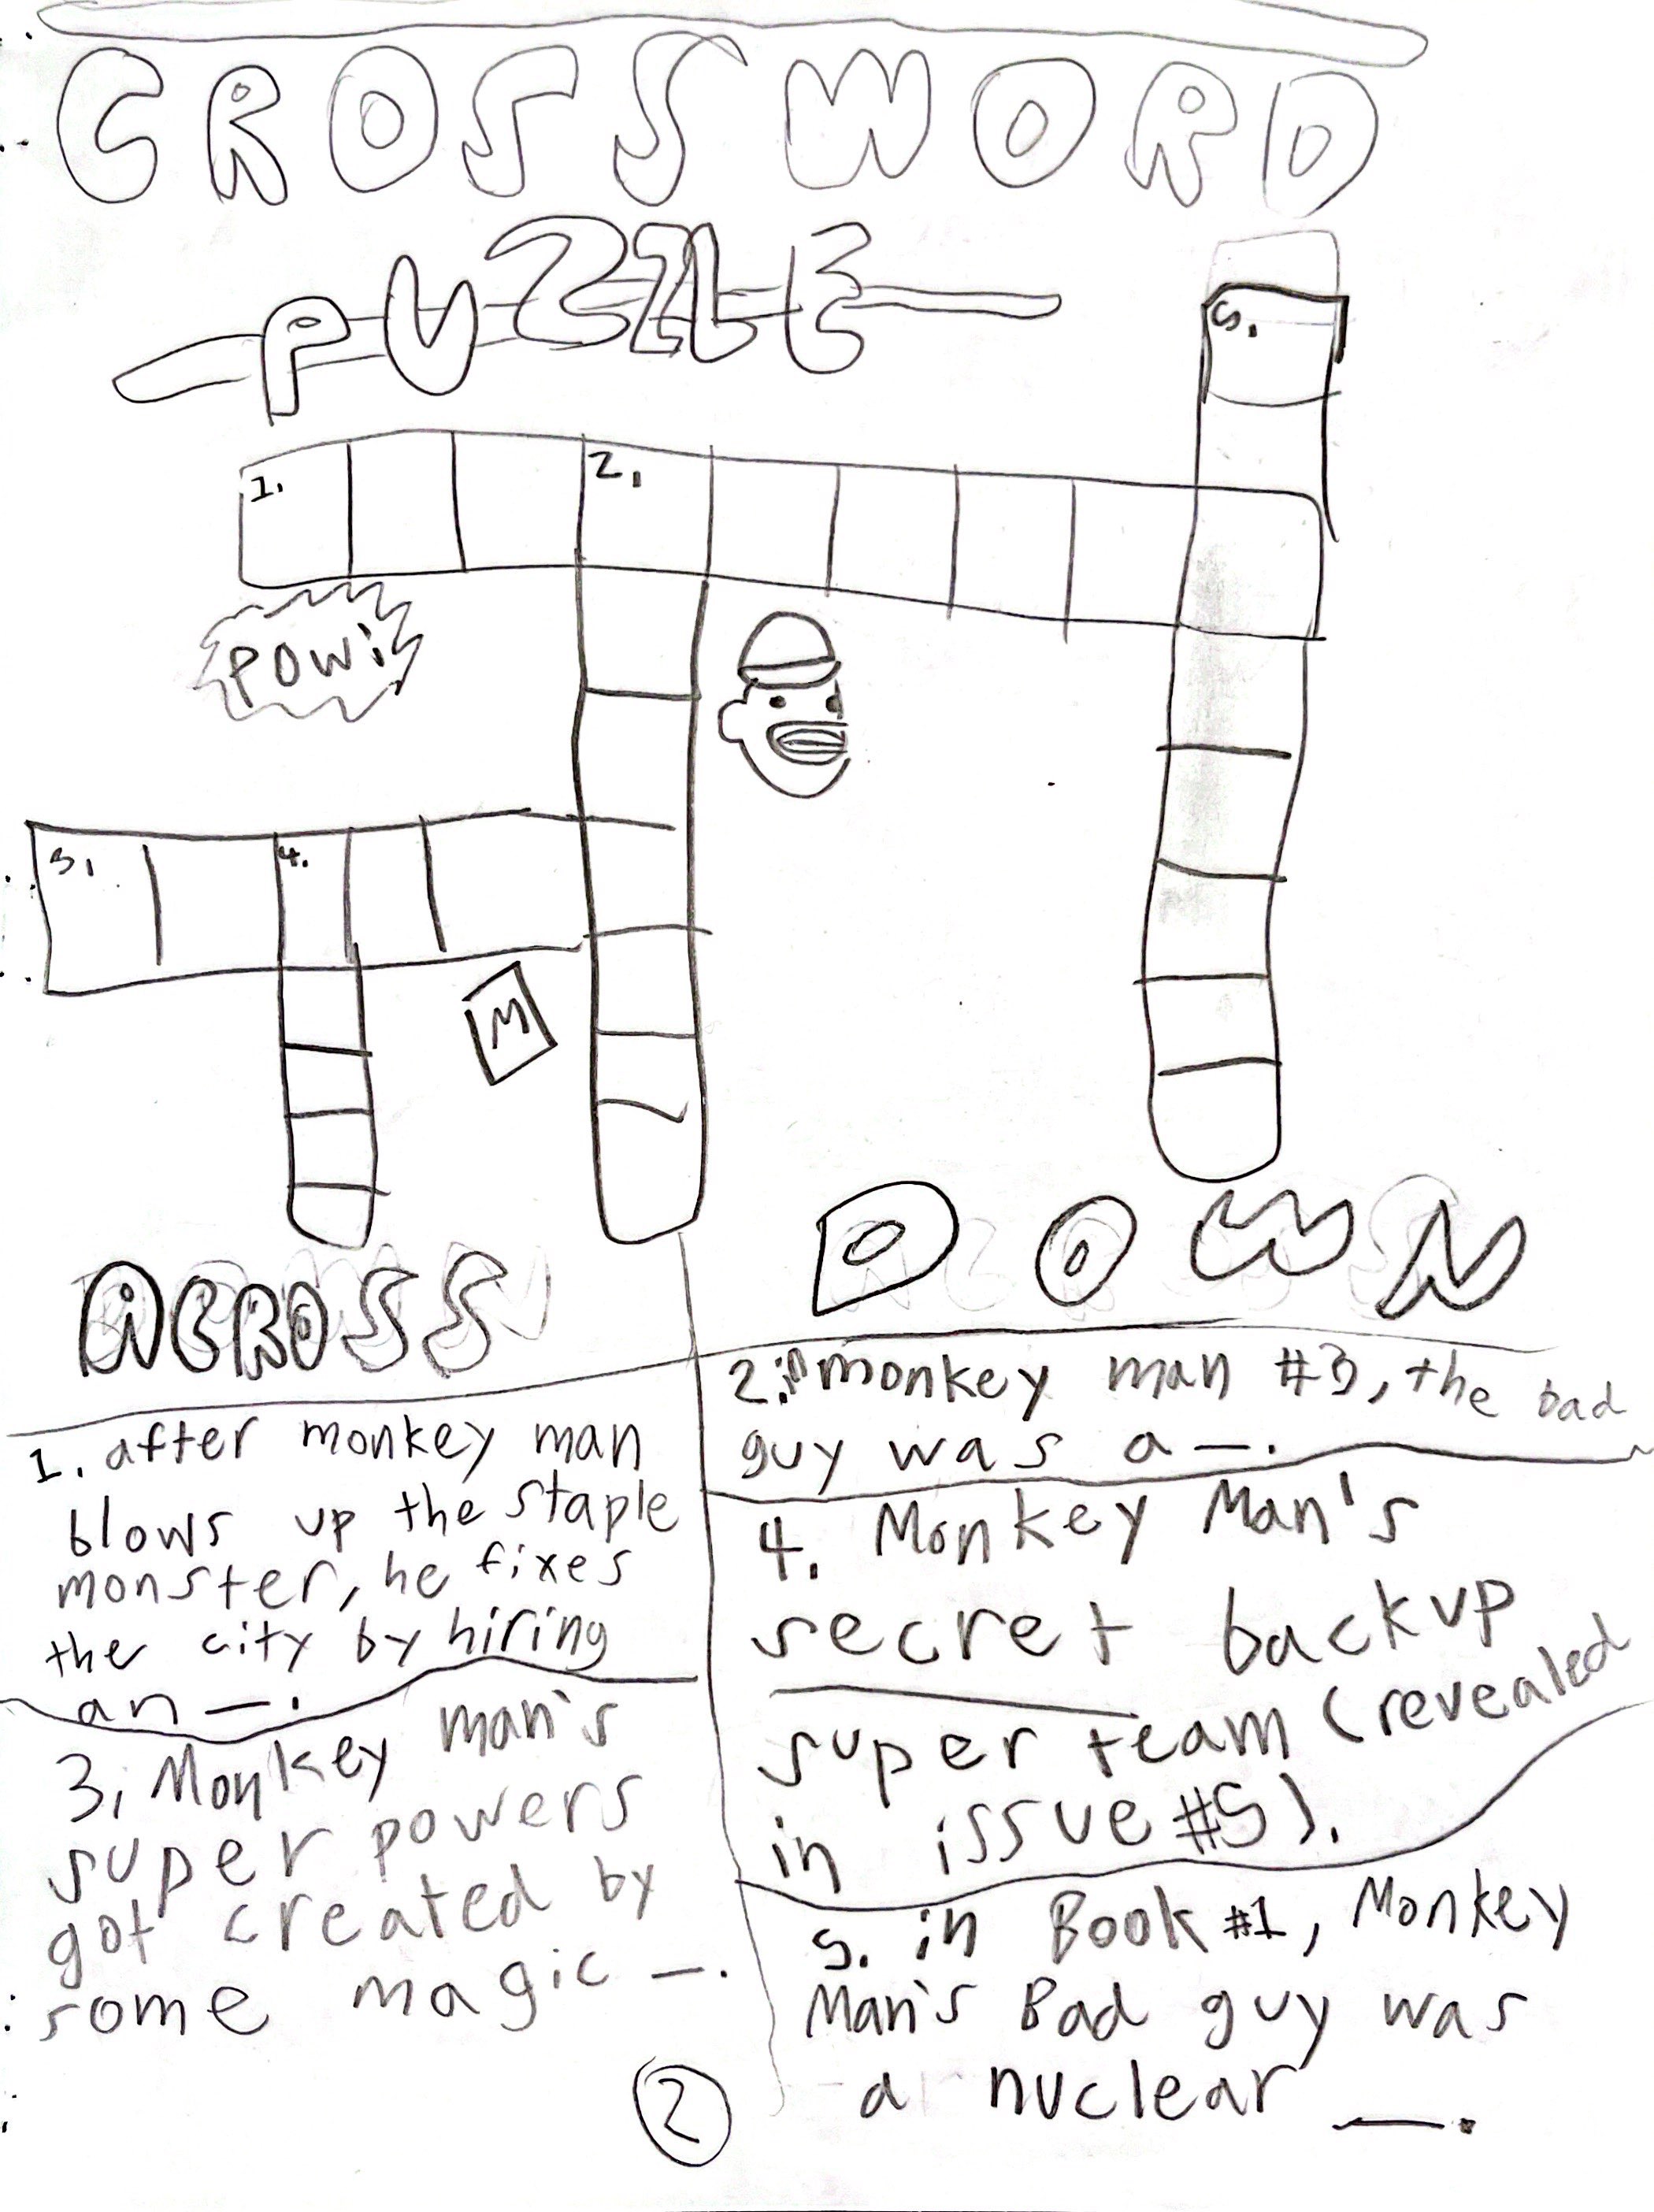 CROSSWORD
PUZZLE
5.
1.
2.
POW!
3.
4.
M
ACROSS
1. after monkey man
blows up the staple
monster, he fixes
the city by hiring
an —.
3. Monkey man's
super powers
got created by
some magic —.
DOWN
2. in monkey man #3, the bad
guy was a —.
4. Monkey Man's
secret backup
super team (revealed
in issue #5).
5. in Book #1, Monkey
Man's Bad guy was
a nuclear —.
2